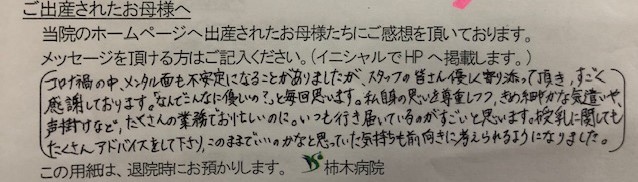 ご出産されたお母様へ
当院のホームページへ出産されたお母様たちにご感想を頂いております。
メッセージを頂ける方はご記入ください。(イニシャルでHPへ掲載します。)
コロナ禍の中、メンタル面も不安定になることがありましたが、スタッフの皆さん優しく寄り添って頂き、すごく
感謝しております。「なんでこんなに優しいの?」と毎回思います。私自身の思いを尊重しつつ、きめ細やかな気遣いや、
声掛けなど、たくさんの業務でお忙しいのに。いつも行き届いているのがすごいと思います。授乳に関しても
たくさんアドバイスをして下さり、このままでいいのかなと思っていた気持ちも前向きに考えられるようになりました。
この用紙は、退院時にお預かりします。 柿木病院